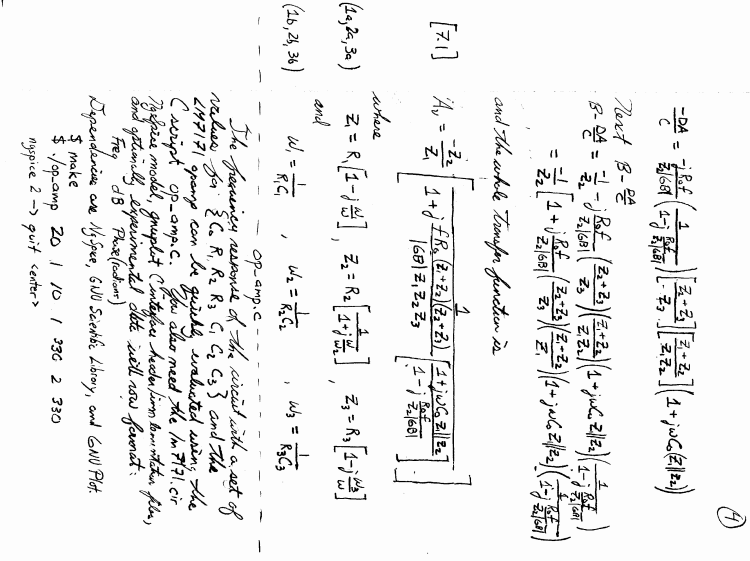 ④
-DA/C = -j R₀f/(Z₂|GB|) (1/(1-j R₀f/(Z₂|GB|))) [(Z₂+Z₃)/Z₃] [(Z₁+Z₂)/(Z₁Z₂)] (1+jωC₀(Z₁||Z₂))
Next B - DA/C
B - DA/C = -1/Z₂ - j R₀f/(Z₂|GB|) ((Z₂+Z₃)/Z₃) ((Z₁+Z₂)/(Z₁Z₂)) (1+jωC₀ Z₁||Z₂) (1/(1-j R₀f/(Z₂|GB|)))
= -1/Z₂ [1+j R₀f/(Z₂|GB|) ((Z₂+Z₃)/Z₃) ((Z₁+Z₂)/Z₁) (1+jωC₀ Z₁||Z₂) (1/(1-j R₀f/(Z₂|GB|)))]
and the whole transfer function is
[7.1] Av = -Z₂/Z₁ [1/(1+j fR₀(Z₁+Z₂)(Z₂+Z₃)/(|GB|Z₁Z₂Z₃) [(1+jωC₀ Z₁||Z₂)/(1-j R₀f/(Z₂|GB|))])]
where
(1a,2a,3a) Z₁=R₁[1-j ω₁/ω], Z₂=R₂[1/(1+j ω/ω₂)], Z₃=R₃[1-j ω₃/ω]
and
(1b,2b,3b) ω₁=1/(R₁C₁), ω₂=1/(R₂C₂), ω₃=1/(R₃C₃)
- - - - op-amp.c - - - -
The frequency response of the circuit with a set of
values for {C₀ R₁ R₂ R₃ C₁ C₂ C₃} and the
LM7171 opamp can be quickly evaluated using the
C script op-amp.c. You also need the lm7171.cir
Ngspice model, gnuplot C interface header,
and optionally experimental data with row format:
Freq dB Phase(radians)
Dependencies are NgSpice, GNU Scientific Library, and GNU Plot.
$ make
$ ./op-amp 20 1 10 1 330 2 330
ngspice 2 -> quit <enter>